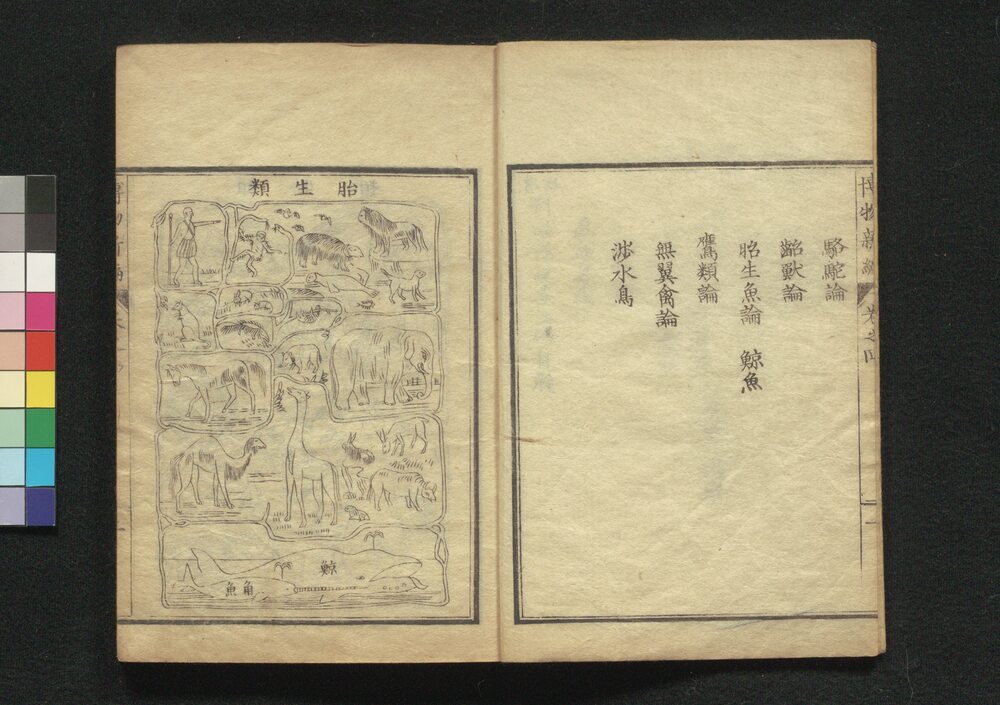 博物新編 卷之四
駱駝論
齝獸論
胎生魚論 鯨魚
鷹類論
無翼禽論
涉水鳥
胎生類
鯨
角魚